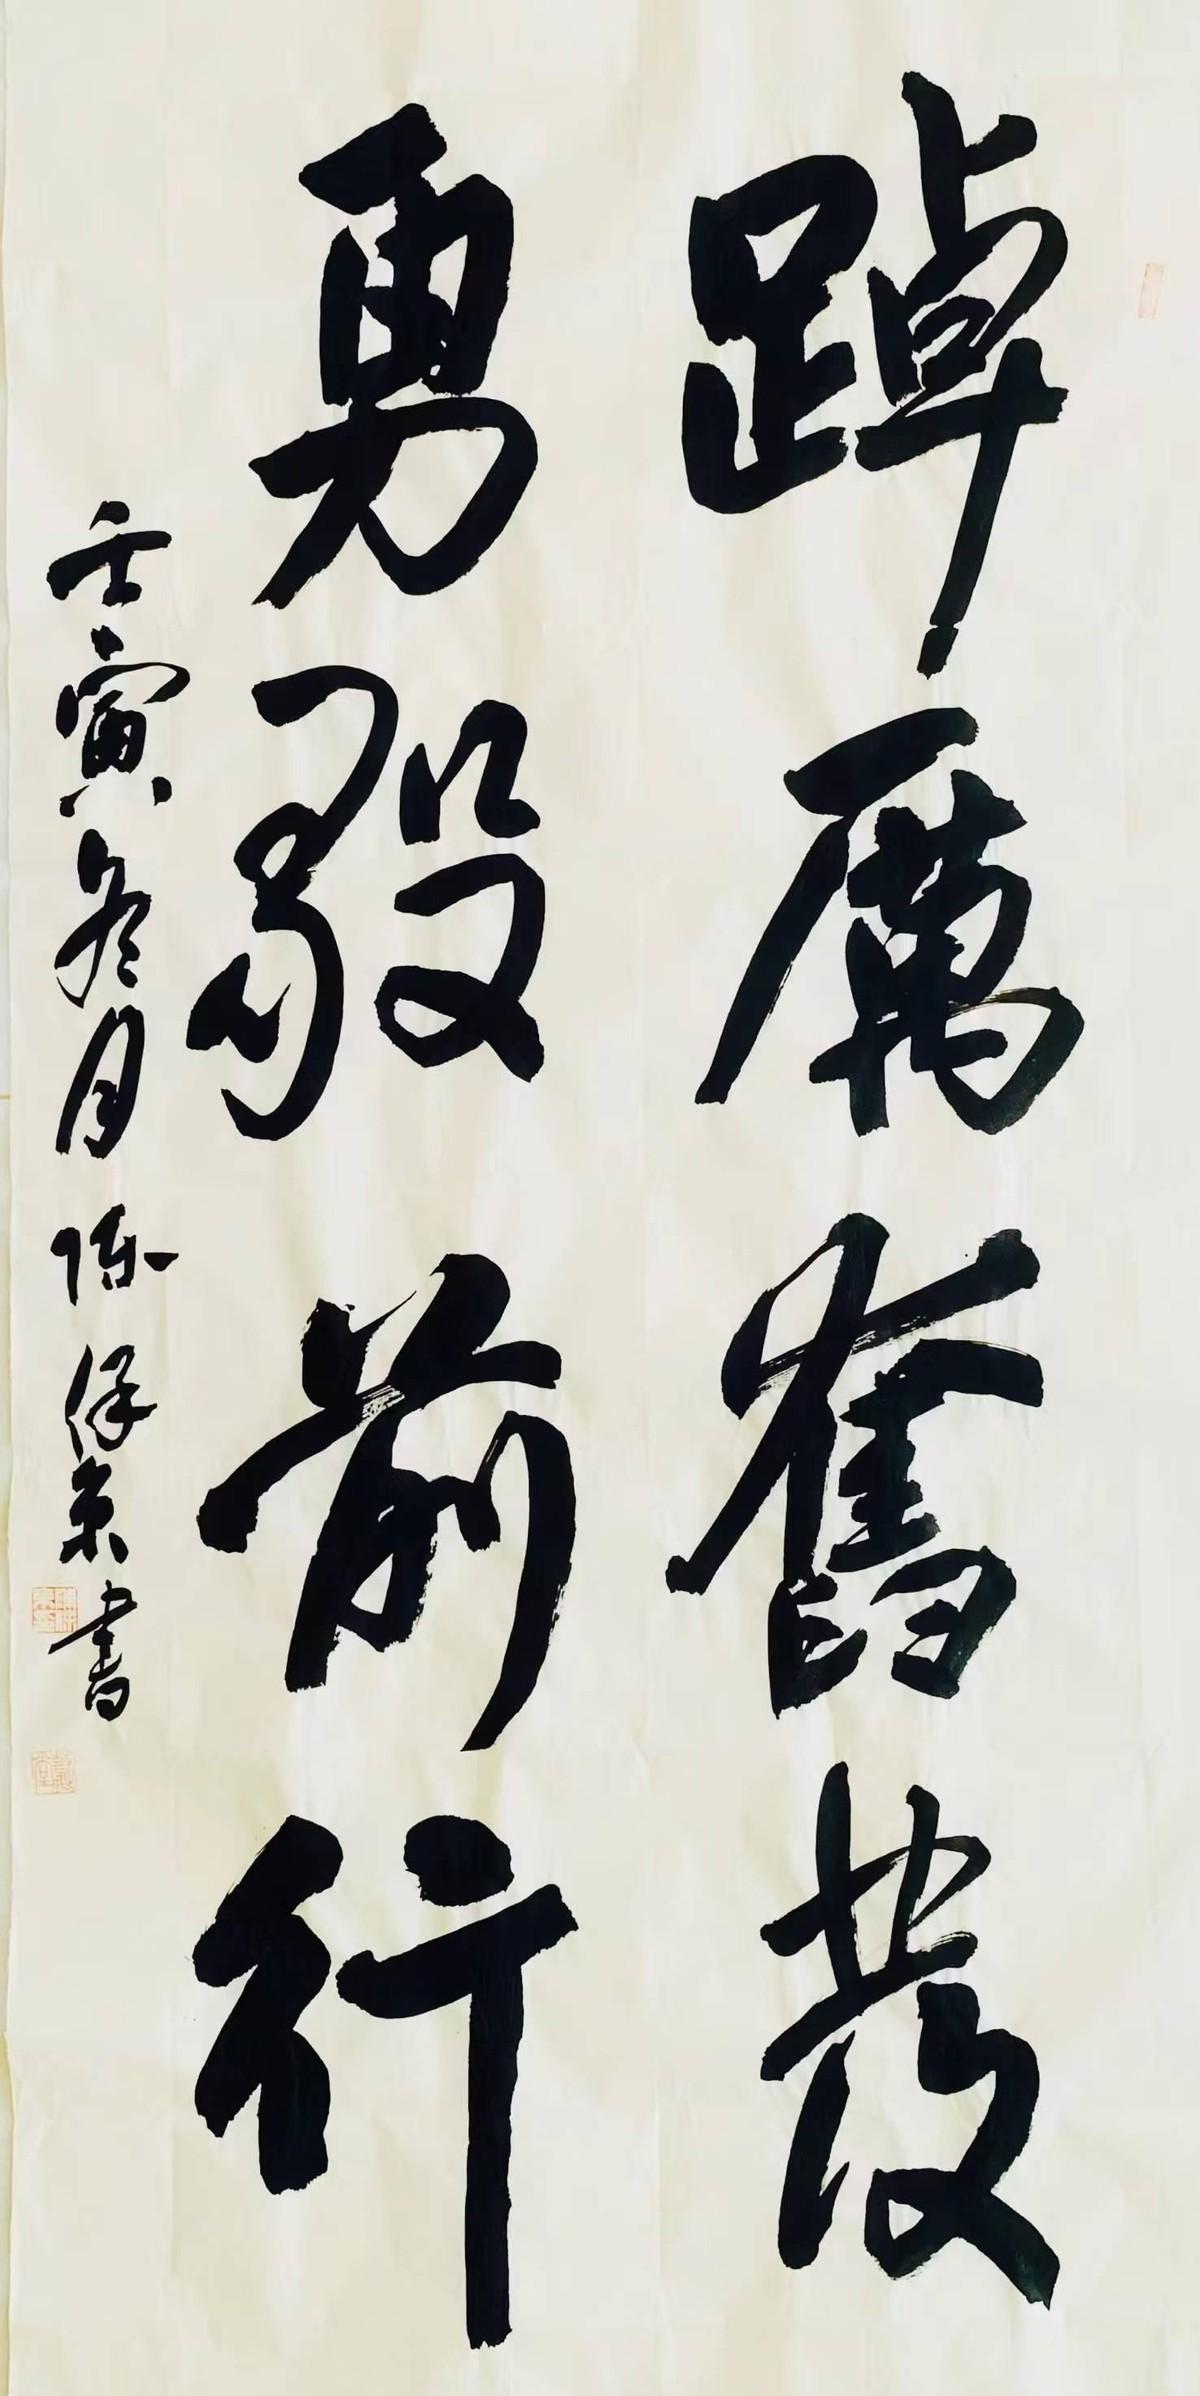 踔厲奮發
勇毅前行
壬寅冬月 陳保京書